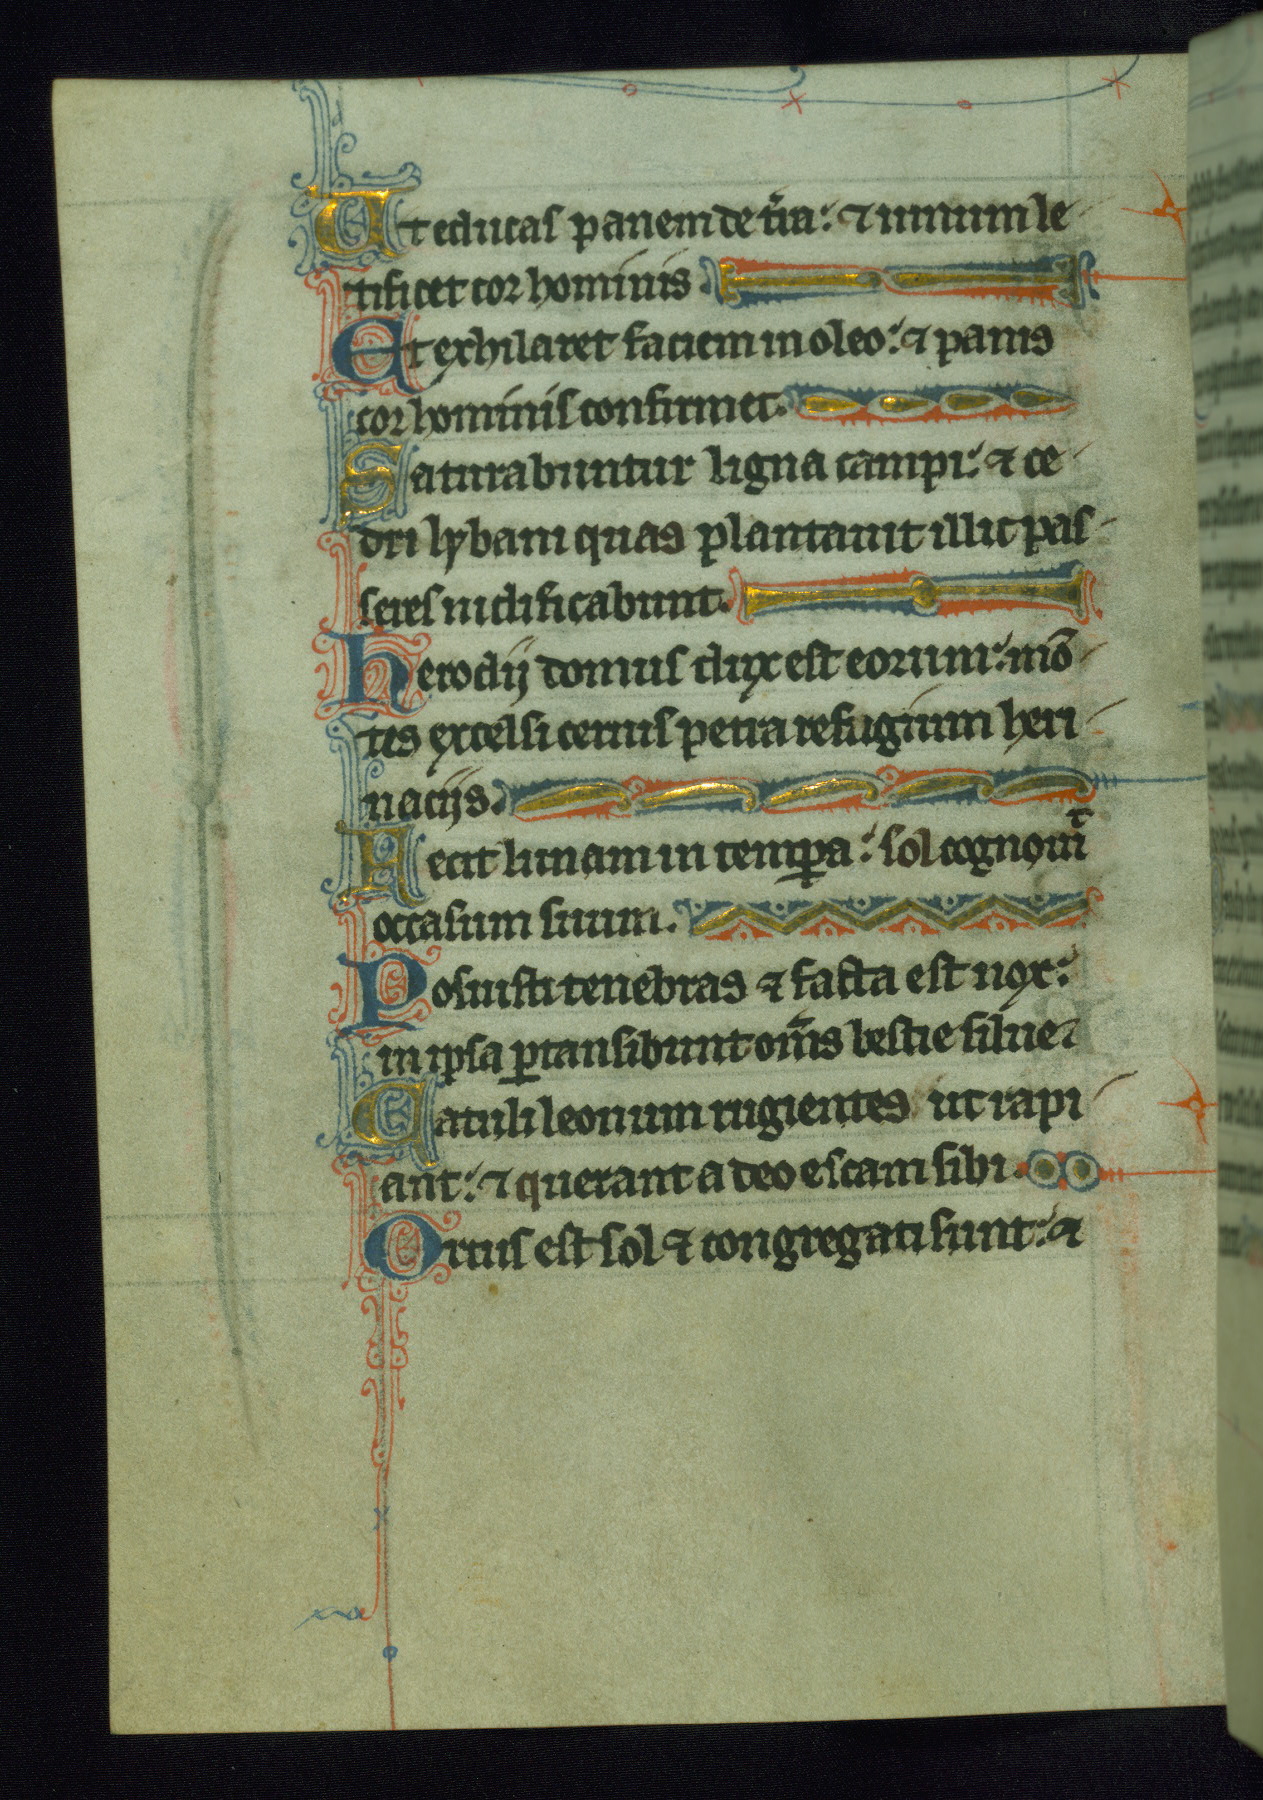 Ut educas panem de t̄ra: ⁊ uinum le
tificet cor hominis
Et exhilaret faciem in oleo: ⁊ panis
cor hominis confirmet.
Saturabuntur ligna campi: ⁊ ce
dri lybani quas plantauit illic pas
seres nidificabunt.
herodij domus dux est eorum: mō
tes excelsi ceruis petra refugium heri
nacijs.
Fecit lunam in temp̱a: sol cognouiᵗ
occasum suum.
Posuisti tenebras ⁊ facta est nox:
in ipsa p̱transibunt om̄s bestie silue
Catuli leonum rugientes ut rapi
ant: ⁊ querant a deo escam sibi.
Ortus est sol ⁊ congregati sunt: ⁊